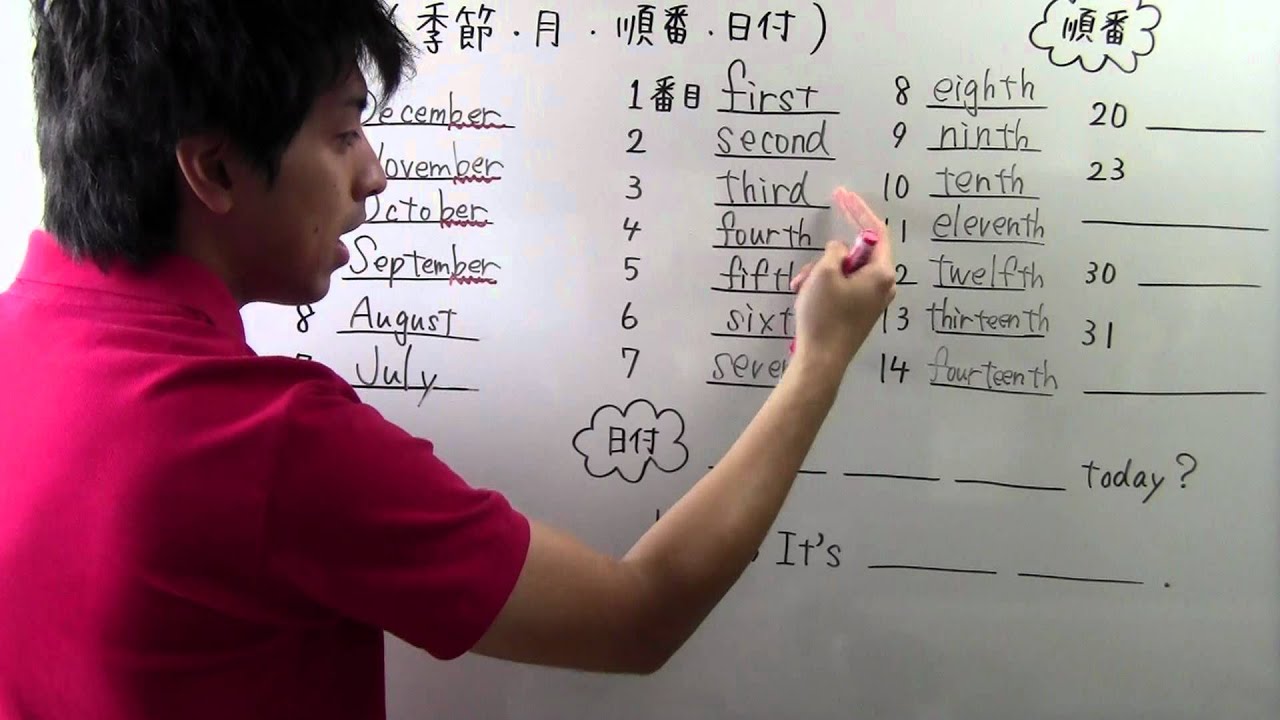 (季節・月・順番・日付)
順番
December
November
October
September
8 August
July
1番目 first
2 second
3 third
4 fourth
5 fifth
6 sixt
7 seven
8 eighth
9 ninth
10 tenth
1 eleventh
2 twelfth
13 thirteenth
14 fourteenth
20
23
30
31
日付
today?
It's .